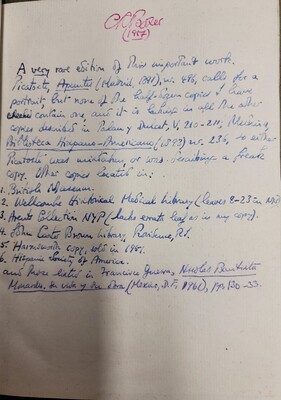 C R Boxer
(1957)
A very rare edition of this important work.
Picatoste, Apuntes (Madrid, 1891), nr. 486, calls for a
portrait but none of the half-dozen copies I have
checked contain one and it is lacking in all the other
copies described in Palau y Dulcet, V, 210-211, Medina,
Biblioteca Hispano-Americana (1898) nr. 236, so either
Picatoste was mistaken or was describing a freak
copy. Other copies located in:
1. British Museum.
2. Wellcome Historical Medical Library (leaves 8-23 in
3. Arents Collection NYP (lacks errata leaf as in my copy).
4. John Carter Brown Library, Providence, R.I.
5. Harmsworth copy, sold in
6. Hispanic Society of America.
and those listed in Francisco Guerra, Nicolas Bautista
Monardes, su vida y su obra (Mexico, D.F., 1961), pp. 130-33.